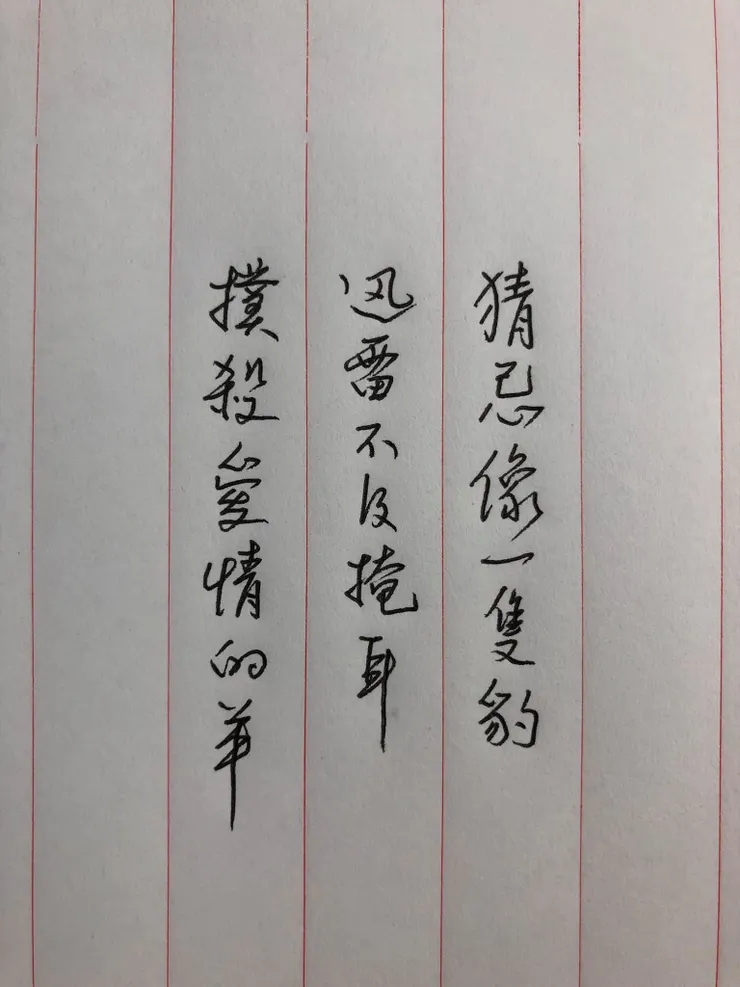 猜忌像一隻豹
迅雷不及掩耳
撲殺愛情的羊